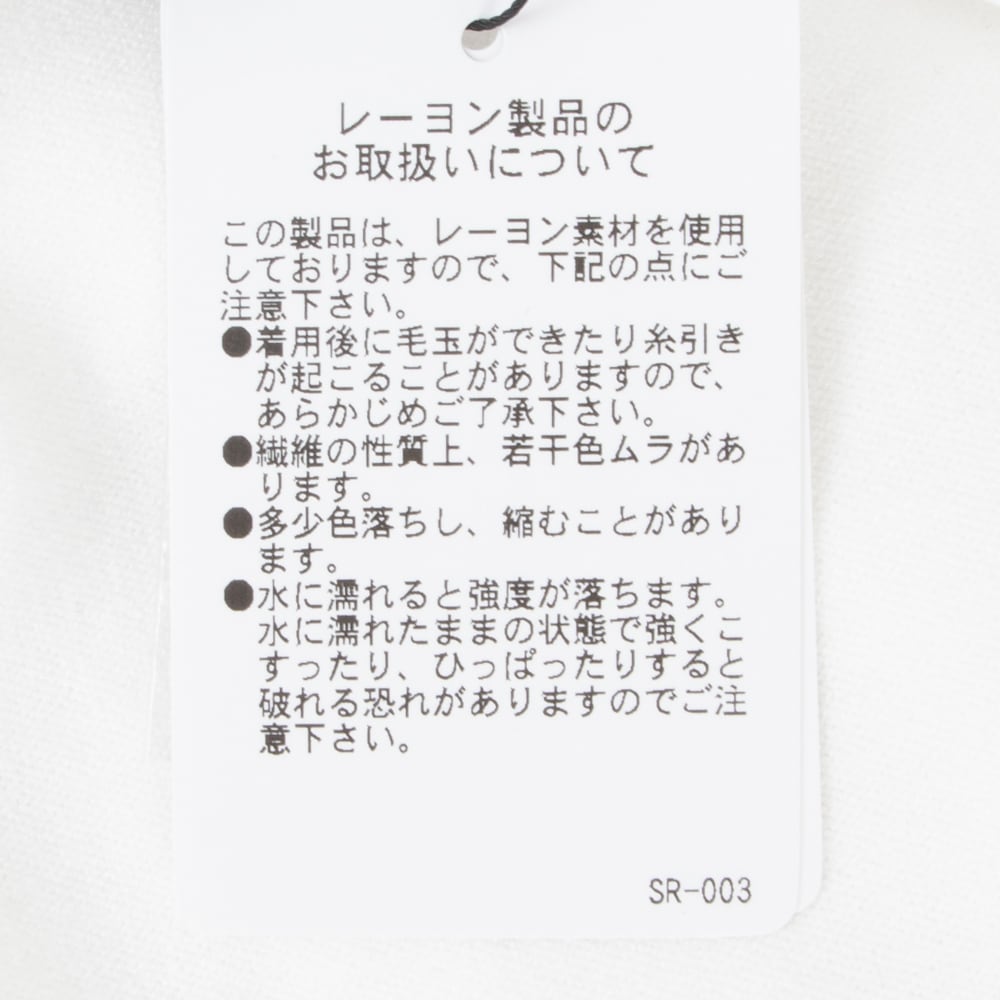 レーヨン製品の
お取扱いについて
この製品は、レーヨン素材を使用
しておりますので、下記の点にご
注意下さい。
●着用後に毛玉ができたり糸引き
が起こることがありますので、
あらかじめご了承下さい。
●繊維の性質上、若干色ムラがあ
ります。
●多少色落ちし、縮むことがあり
ます。
●水に濡れると強度が落ちます。
水に濡れたままの状態で強くこ
すったり、ひっぱったりすると
破れる恐れがありますのでご注
意下さい。
SR-003